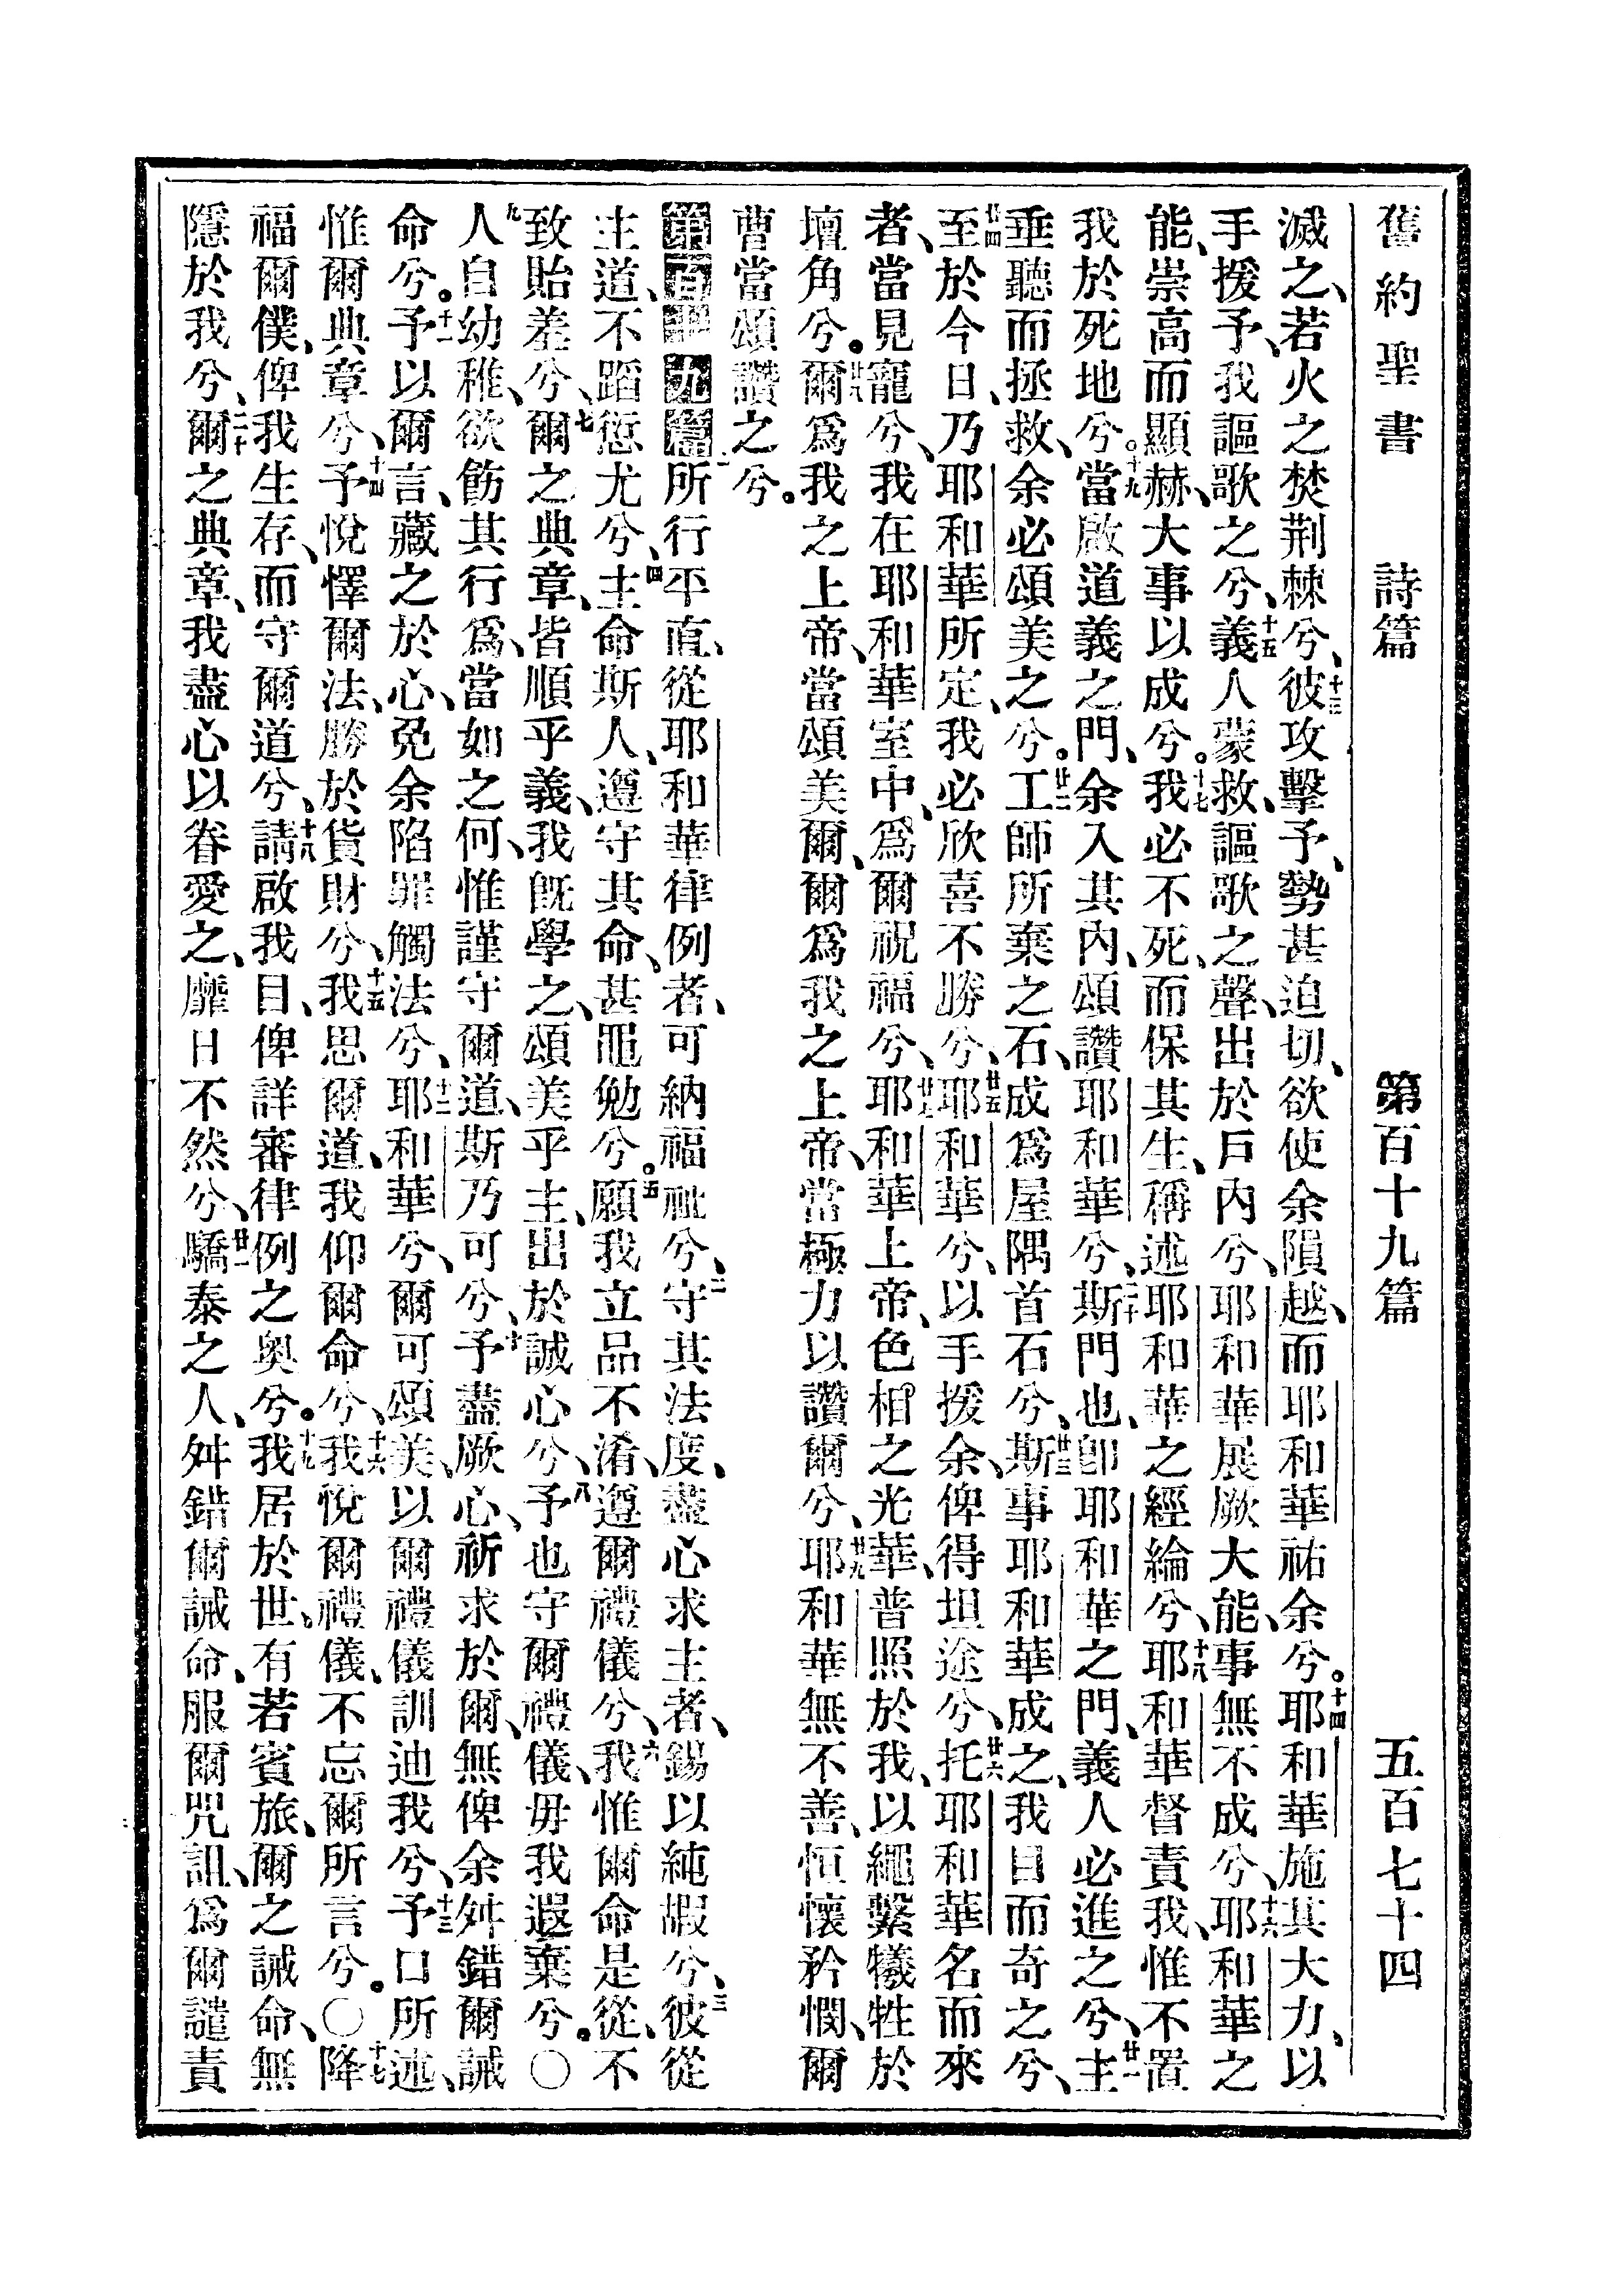 舊約聖書 詩篇 第百十九篇 五百七十四
滅之、若火之焚荆棘兮、十三彼攻擊予、勢甚迫切、欲使余隕越、而耶和華祐余兮。十四耶和華施其大力、以
手援予、我謳歌之兮、十五義人蒙救、謳歌之聲、出於戶內兮、耶和華展厥大能、事無不成兮、十六耶和華之
能、崇高而顯赫、大事以成兮。十七我必不死、而保其生、稱述耶和華之經綸兮、十八耶和華督責我、惟不置
我於死地兮。十九當啟道義之門、余入其內、頌讚耶和華兮、二十斯門也、卽耶和華之門、義人必進之兮、廿一主
垂聽而拯救、余必頌美之兮。廿二工師所棄之石、成爲屋隅首石兮、廿三斯事耶和華成之、我目而奇之兮、
廿四至於今日、乃耶和華所定、我必欣喜不勝兮、廿五耶和華兮、以手援余、俾得坦途兮、廿六托耶和華名而來
者、當見寵兮、我在耶和華室中、爲爾祝福兮、廿七耶和華上帝、色相之光華、普照於我、以繩繫犧牲於
壇角兮。廿八爾爲我之上帝、當頌美爾、爾爲我之上帝、當極力以讚爾兮、廿九耶和華無不善、恒懷矜憫、爾
曹當頌讚之兮。
第百十九篇 一所行平直、從耶和華律例者、可納福祉兮、二守其法度、盡心求主者、錫以純嘏兮、三彼從
主道、不蹈愆尤兮、四主命斯人、遵守其命、甚黽勉兮。五願我立品不淆、遵爾禮儀兮、六我惟爾命是從、不
致貽羞兮、七爾之典章、皆順乎義、我旣學之、頌美乎主、出於誠心兮、八予也守爾禮儀、毋我遐棄兮。〇
九人自幼稚、欲飭其行爲、當如之何、惟謹守爾道、斯乃可兮、十予盡厥心、祈求於爾、無俾余舛錯爾誡
命兮。十一予以爾言、藏之於心、免余陷罪觸法兮、十二耶和華兮、爾可頌美、以爾禮儀訓迪我兮、十三予口所述、
惟爾典章兮、十四予悅懌爾法、勝於貨財兮、十五我思爾道、我仰爾命兮、十六我悅爾禮儀、不忘爾所言兮。〇十七降
福爾僕、俾我生存、而守爾道兮、十八請啟我目、俾詳審律例之奧兮。十九我居於世、有若賓旅、爾之誡命、無
隱於我兮、二十爾之典章、我盡心以眷愛之、靡日不然兮、廿一驕泰之人、舛錯爾誡命、服爾咒詛、爲爾譴責